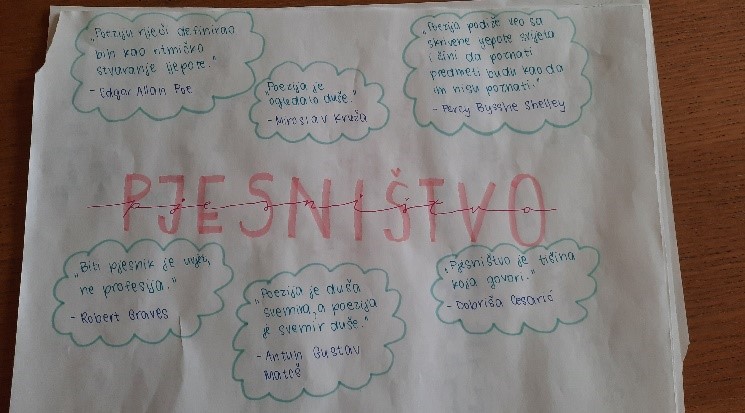 „Poeziju riječi definirao
bih kao ritmičko
stvaranje ljepote."
- Edgar Allan Poe
„Poezija je
ogledalo duše."
- Miroslav Krleža
„Poezija podiže veo sa
skrivene ljepote svijeta
i čini da poznati
predmeti budu kao da
im nisu poznati."
- Percy Bysshe Shelley
PJESNIŠTVO
pjesništvo
„Biti pjesnik je uvjet,
ne profesija."
- Robert Graves
„Poezija je duša
svemira, a poezija
je svemir duše."
- Antun Gustav
Matoš
„Pjesništvo je tišina
koja govori."
- Dobriša Cesarić